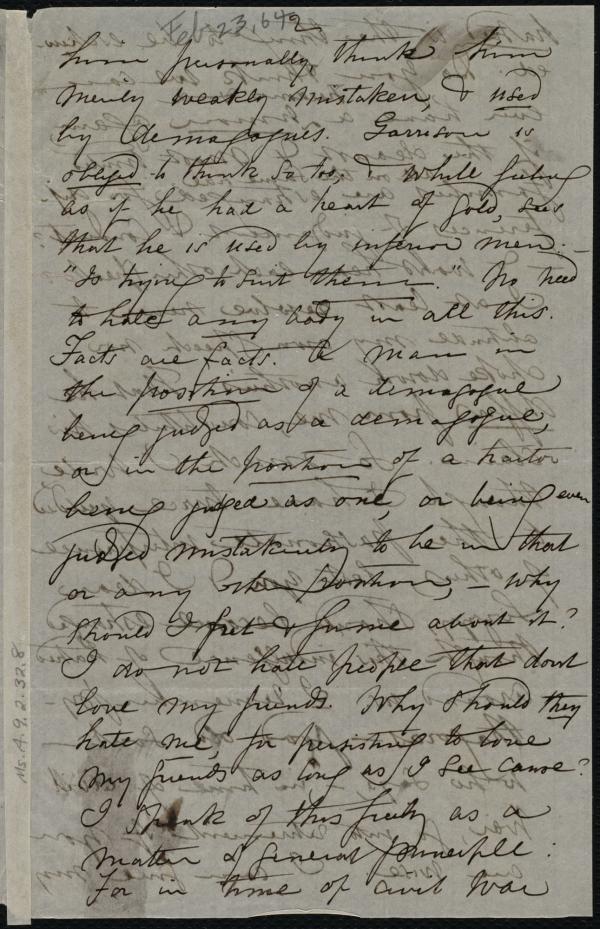 Feb. 23, 64
2
him personally, think him
merely weakly mistaken, & used
by demagogues. Garrison is
obliged to think so too; & while feeling
as if he had a heart of gold, sees
that he is used by inferior men. —
"Is trying to suit them." No need
to hate any body in all this.
Facts are facts. A man in
the position of a demagogue
being judged as a demagogue,
or in the position of a traitor
being judged as one, or being even
judged mistakenly to be in that
or any other position, — why
should I fret & fume about it?
I do not hate people that dont
love my friends. Why should they
hate me, for persisting to love
my friends as long as I see cause?
I speak of this freely as a
matter of general principle:
For in time of civil War
Ms. A. 9. 2. 32. 8